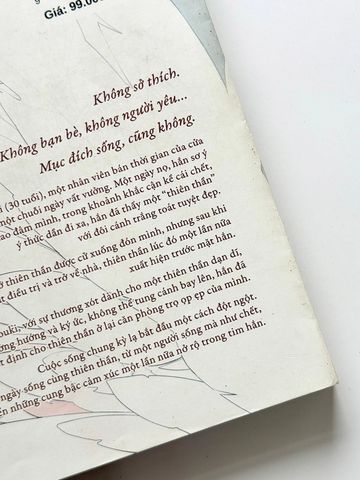 Giá: 99.00
Không sở thích.
Không bạn bè, không người yêu...
Mục đích sống, cũng không.
i (30 tuổi), một nhân viên bán thời gian của cửa
một chuỗi ngày vất vưởng. Một ngày nọ, hắn sơ ý
ao đâm mình, trong khoảnh khắc cận kề cái chết,
ý thức dần đi xa, hắn đã thấy một "thiên thần"
với đôi cánh trắng toát tuyệt đẹp,
thiên thần được cử xuống đón mình, nhưng sau khi
điều trị và trở về nhà, thiên thần lúc đó một lần nữa
xuất hiện trước mặt hắn.
buki, với sự thương xót dành cho một thiên thần dạn dĩ,
hướng và ký ức, không thể tung cánh bay lên, hắn đã
định cho thiên thần ở lại căn phòng trọ ọp ẹp của mình.
Cuộc sống chung kỳ lạ bắt đầu một cách đột ngột.
ngày sống cùng thiên thần, từ một người sống mà như chết,
những cung bậc cảm xúc một lần nữa nở rộ trong tim hắn.